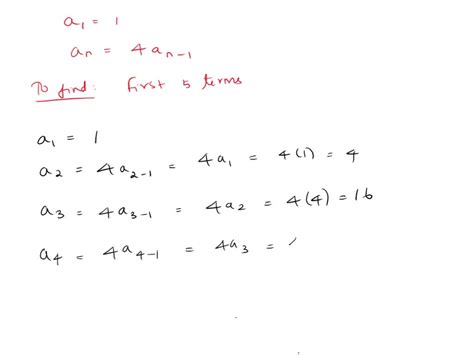 a₁ = 1
aₙ = 4aₙ₋₁
To find: First 5 terms
a₁ = 1
a₂ = 4a₂₋₁ = 4a₁ = 4(1) = 4
a₃ = 4a₃₋₁ = 4a₂ = 4(4) = 16
a₄ = 4a₄₋₁ = 4a₃ =